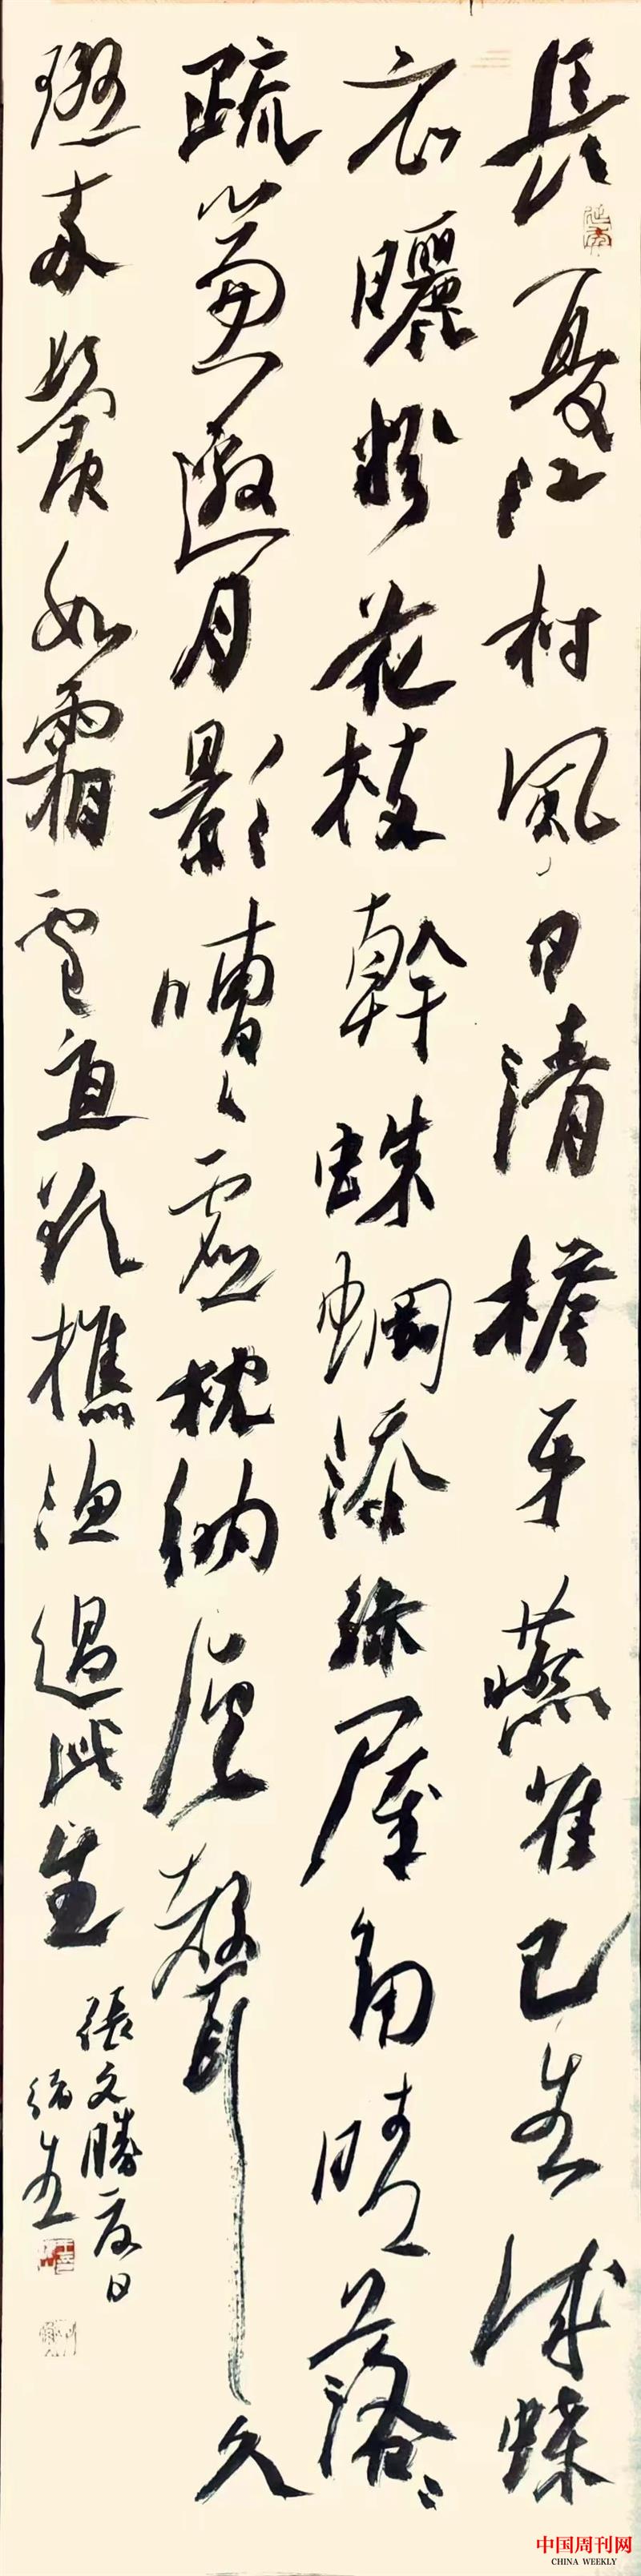 長夏江村風日清檐牙燕雀已生成蝶
衣曬粉花枝幹蛛網添絲屋角晴落〻
疏簾邀月影嘈〻虛枕納溪聲久
斑兩鬢如霜雪直欲樵漁過此生
張文勝夏日
緒生
中国周刊网
CHINA WEEKLY